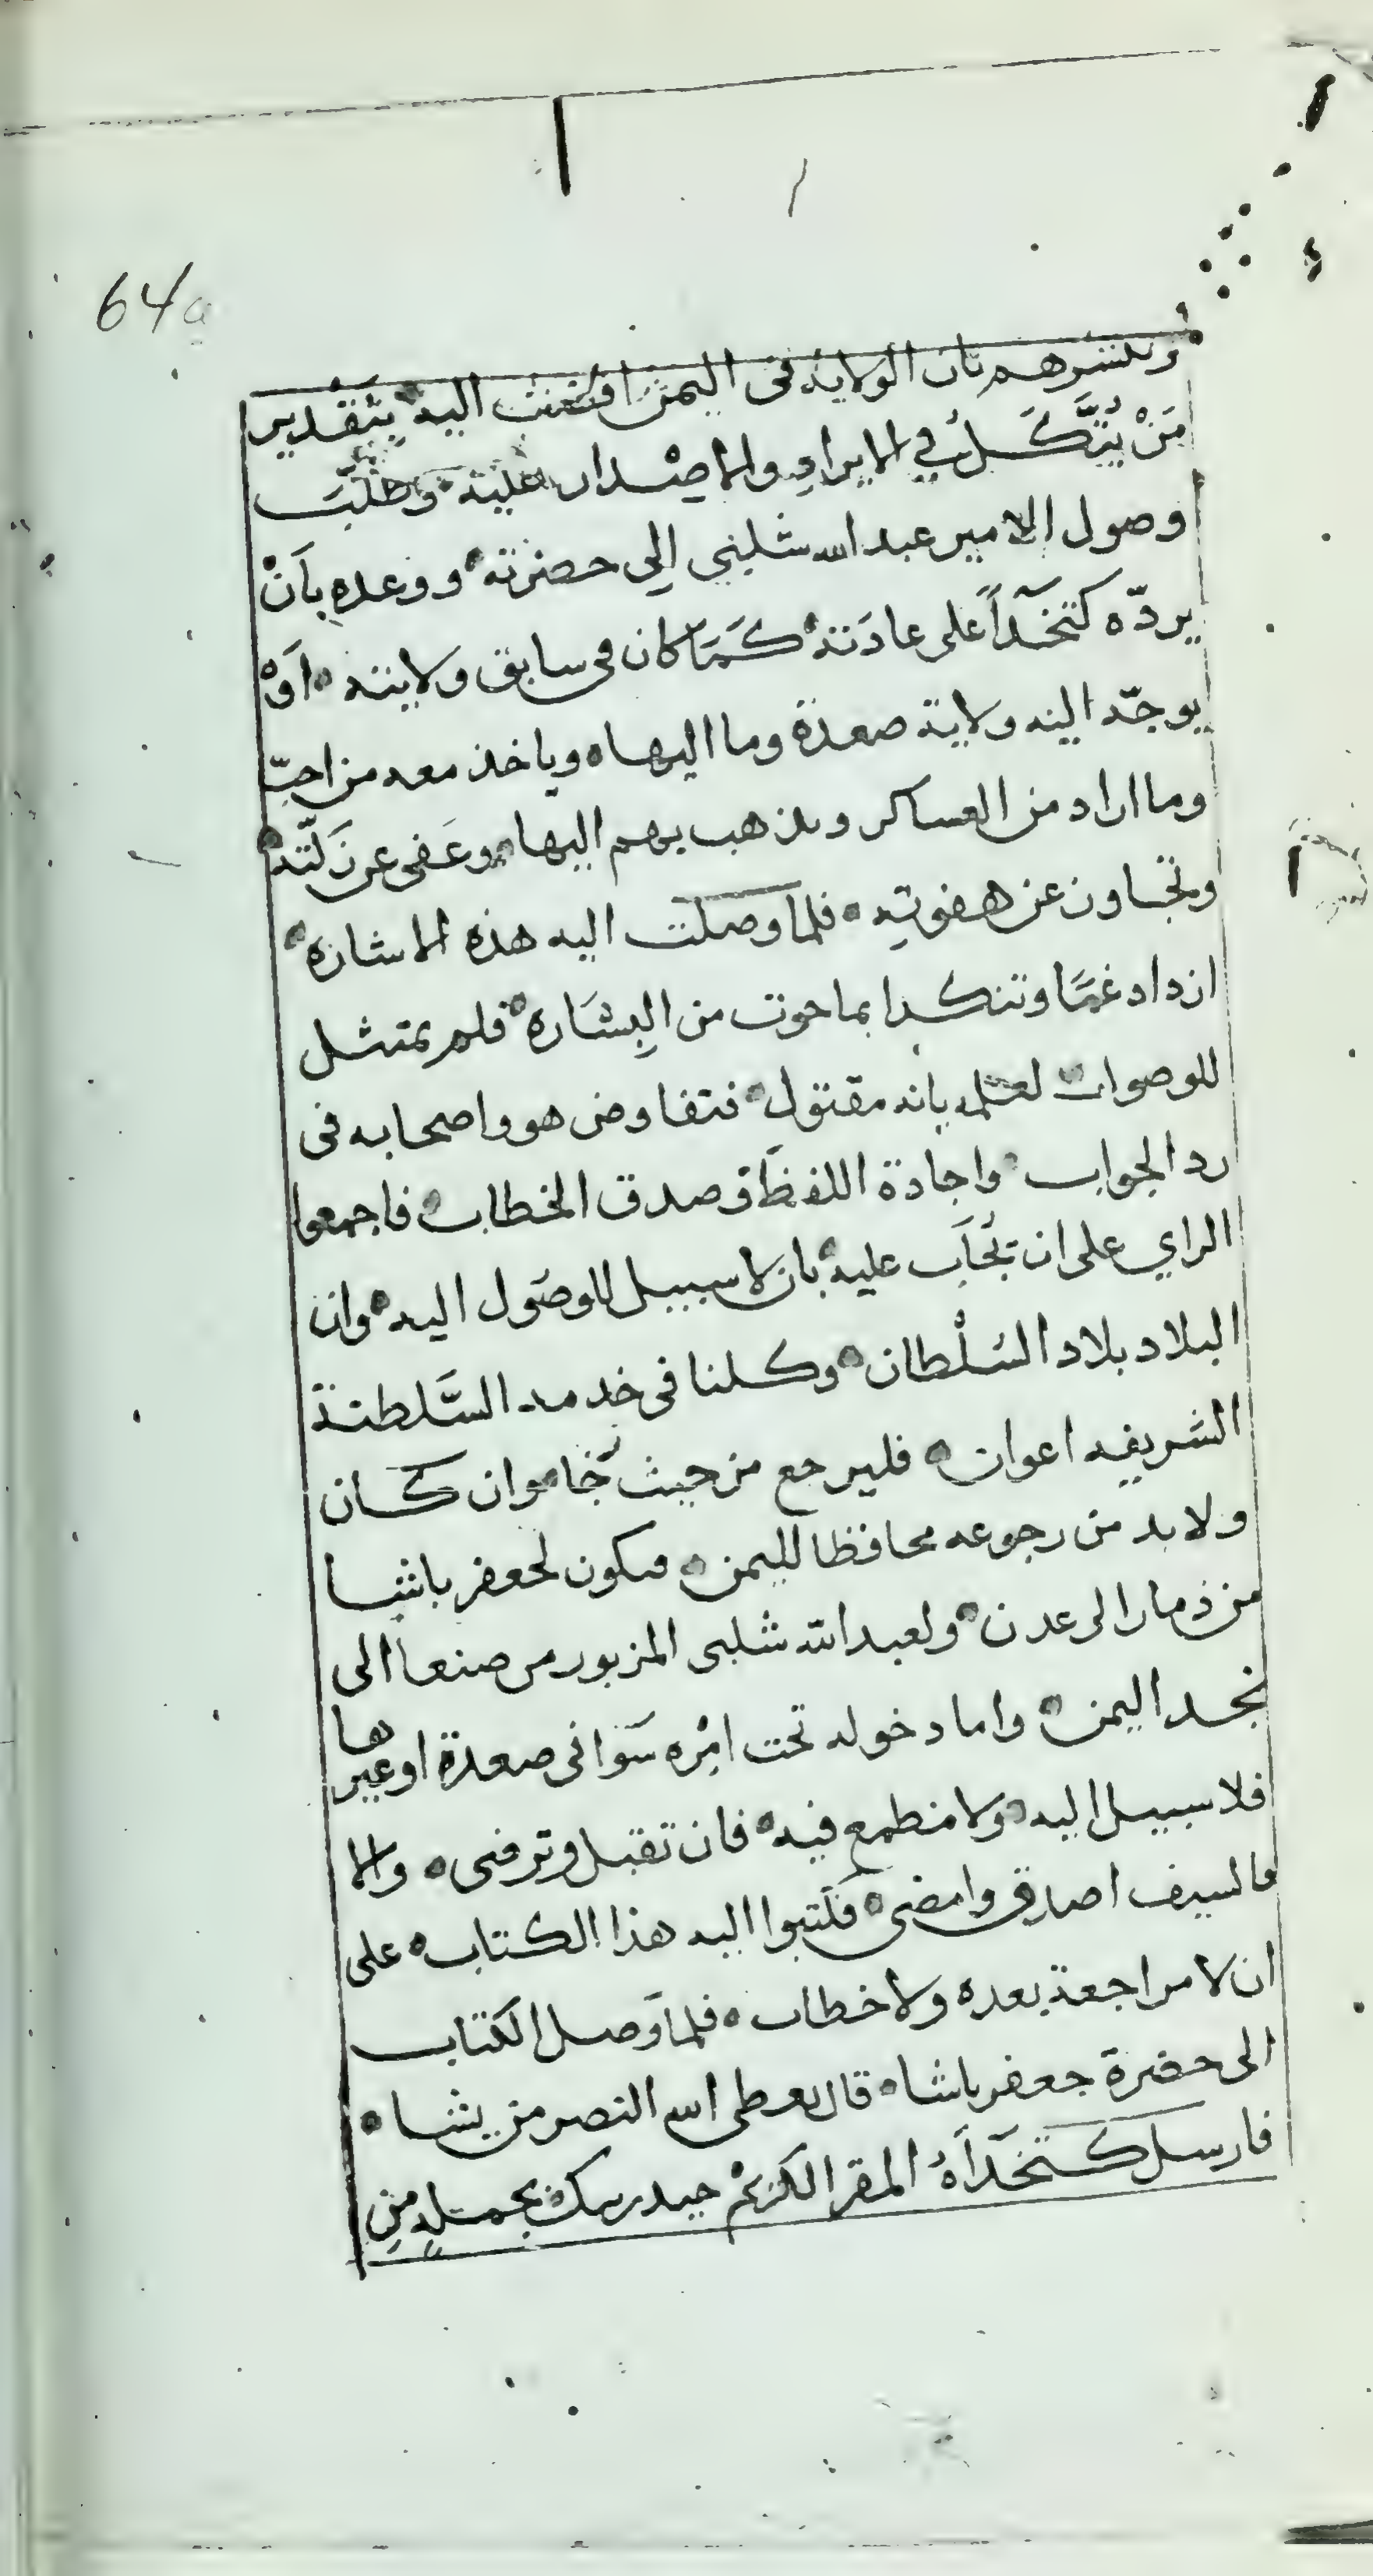 64a
ويبشرهم بان الولاية فى اليمن افضت اليه بتقدير
مَنْ يُتَّكَلُ في الايرادِ والاصْدار عليه وطلبَ
وصول الامير عبد الله شلبي الى حضرته ووعده بأنْ
يردّه كتخدآً على عادَته كَمَا كان فى سابق ولايته اَوْ
يوجّه اليه ولاية صعدة وما اليها وياخذ معه من احبّ
وما اراد من العساكر ويذهب بهم اليها وعَفى عن زَلّته
وتجاوز عن هفوته فلمّا وصلت اليه هذه الاشارة
ازداد غمّا وتنكدا بما حوت من البِشَاره فلم يمتثل
للوصول لعلمه بانه مقتول فتفاوض هو واصحابه فى
رد الجواب واجادة اللفظ وصدق الخطاب فاجمعوا
الراي على ان يُجَاب عليه بان لا سبيل للوصول اليه وان
البلاد بلاد السلْطان وكلنا فى خدمه السَّلطنة
الشريفه اعوان فليرجع من حيث جَا وان كان
ولا بد من رجوعه محافظا لليمن فيكون لجعفر باشا
من ذمار الى عدن ولعبد الله شلبى المزبور من صنعا الى
نجد اليمن واما دخوله تحت امْره سَوا فى صعدة او غيرها
فلا سبيل اليه ولا مطمع فيه فان تقبل وترضى والا
فالسيف اصدق وامضى فكتبوا اليه هذا الكتاب على
ان لا مراجعة بعده ولا خطاب فلمّا وصل الكتاب
الى حضرة جعفر باشا قال يعطى الله النصر من يشا
فارسل كتخدآهُ المقر الكريم حيدر بيك بجملةٍ من